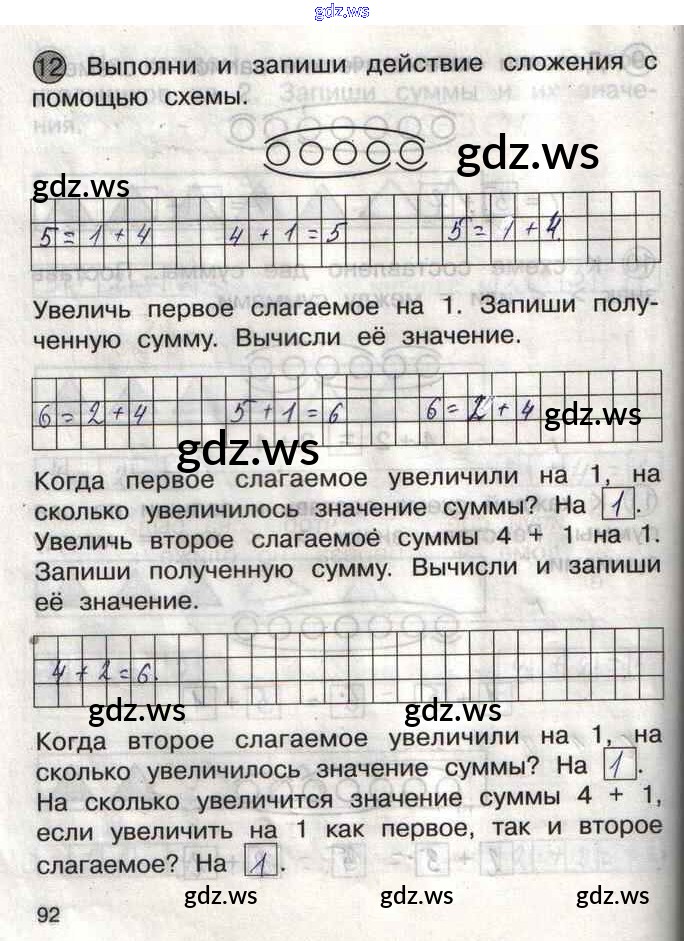 gdz.ws
12 Выполни и запиши действие сложения с
помощью схемы.
gdz.ws
gdz.ws
5 = 1 + 4 4 + 1 = 5 5 = 1 + 4
Увеличь первое слагаемое на 1. Запиши полу-
ченную сумму. Вычисли её значение.
6 = 2 + 4 5 + 1 = 6 6 = 2 + 4
gdz.ws
gdz.ws
Когда первое слагаемое увеличили на 1, на
сколько увеличилось значение суммы? На 1.
Увеличь второе слагаемое суммы 4 + 1 на 1.
Запиши полученную сумму. Вычисли и запиши
её значение.
4 + 2 = 6.
gdz.ws gdz.ws
Когда второе слагаемое увеличили на 1, на
сколько увеличилось значение суммы? На 1.
На сколько увеличится значение суммы 4 + 1,
если увеличить на 1 как первое, так и второе
слагаемое? На 1.
gdz.ws gdz.ws gdz.ws
92